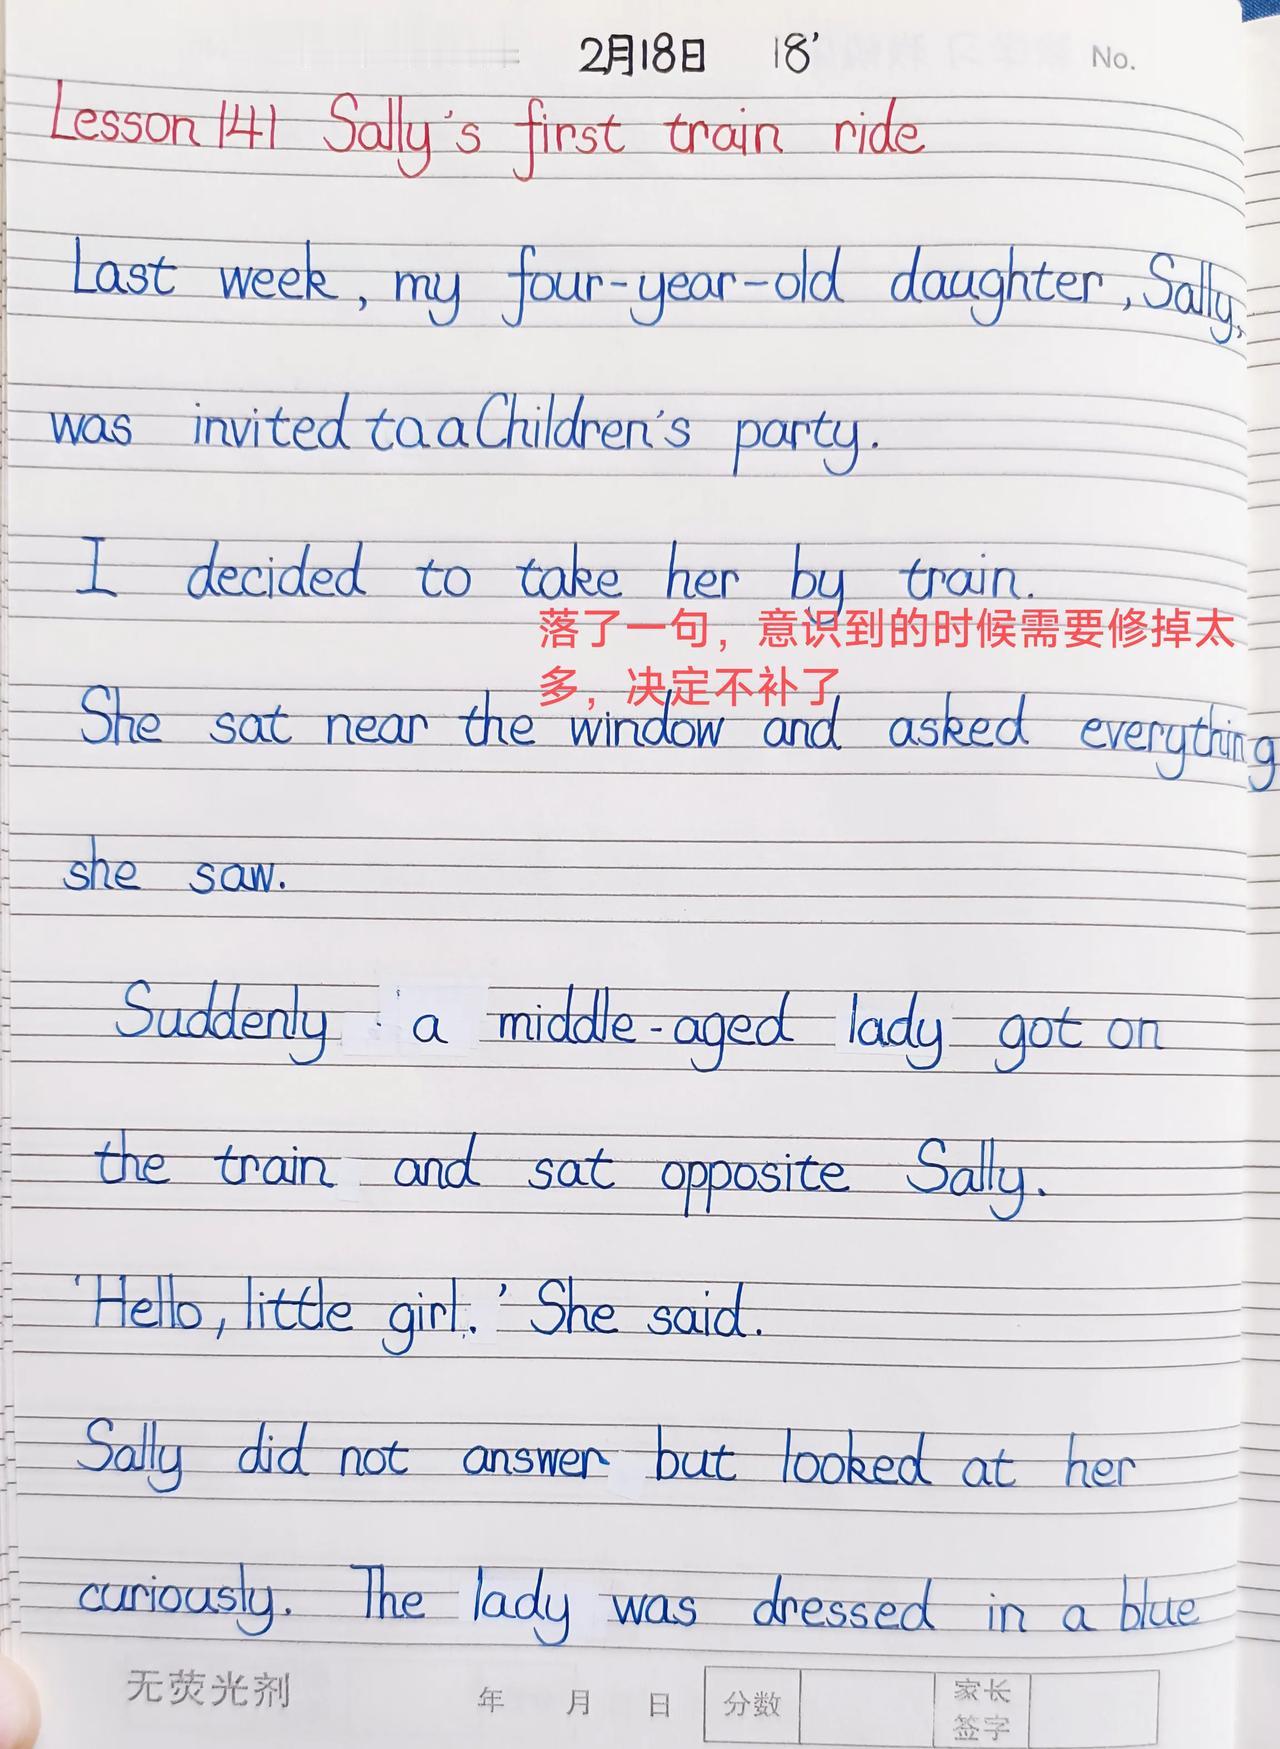 2月18日 18' No.
Lesson 141 Sally's first train ride
Last week, my four-year-old daughter, Sally,
was invited ta a Children's party.
I decided to take her by train.
落了一句，意识到的时候需要修掉太
多，决定不补了
She sat near the window and asked everything
she saw.
Suddenly a middle-aged lady got on
the train and sat opposite Sally.
'Hello, little girl.' She said.
Sally did not answer but looked at her
curiously. The lady was dressed in a blue
无荧光剂 年 月 日 分数 家长
签字